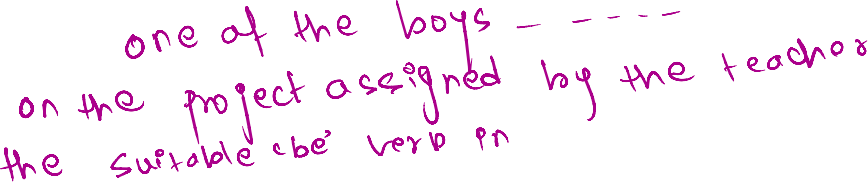 one of the boys ------
on the project assigned by the teacher
the suitable 'be' verb in